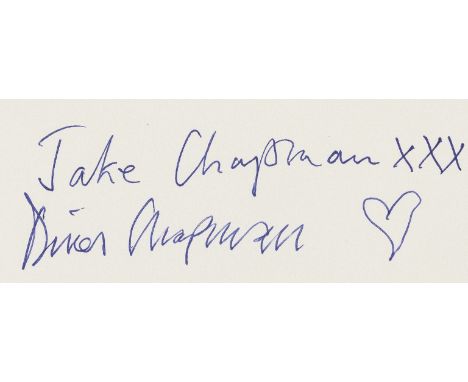 Jake Chapman xxx
Dinos Chapman